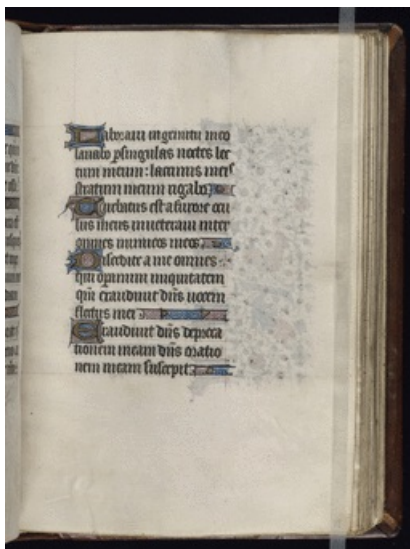 Laboravi in gemitu meo
lavabo p singulas noctes lec
tum meum: lacrimis meis
stratum meum rigabo
Turbatus est a furore ocu
lus meus inveteravi inter
omnes inimicos meos
Discedite a me omnes
qui operamini iniquitatem
qm̄ exaudivit dn̄s vocem
fletus mei
Exaudivit dn̄s depreca
tionem meam dn̄s oratio
nem meam suscepit